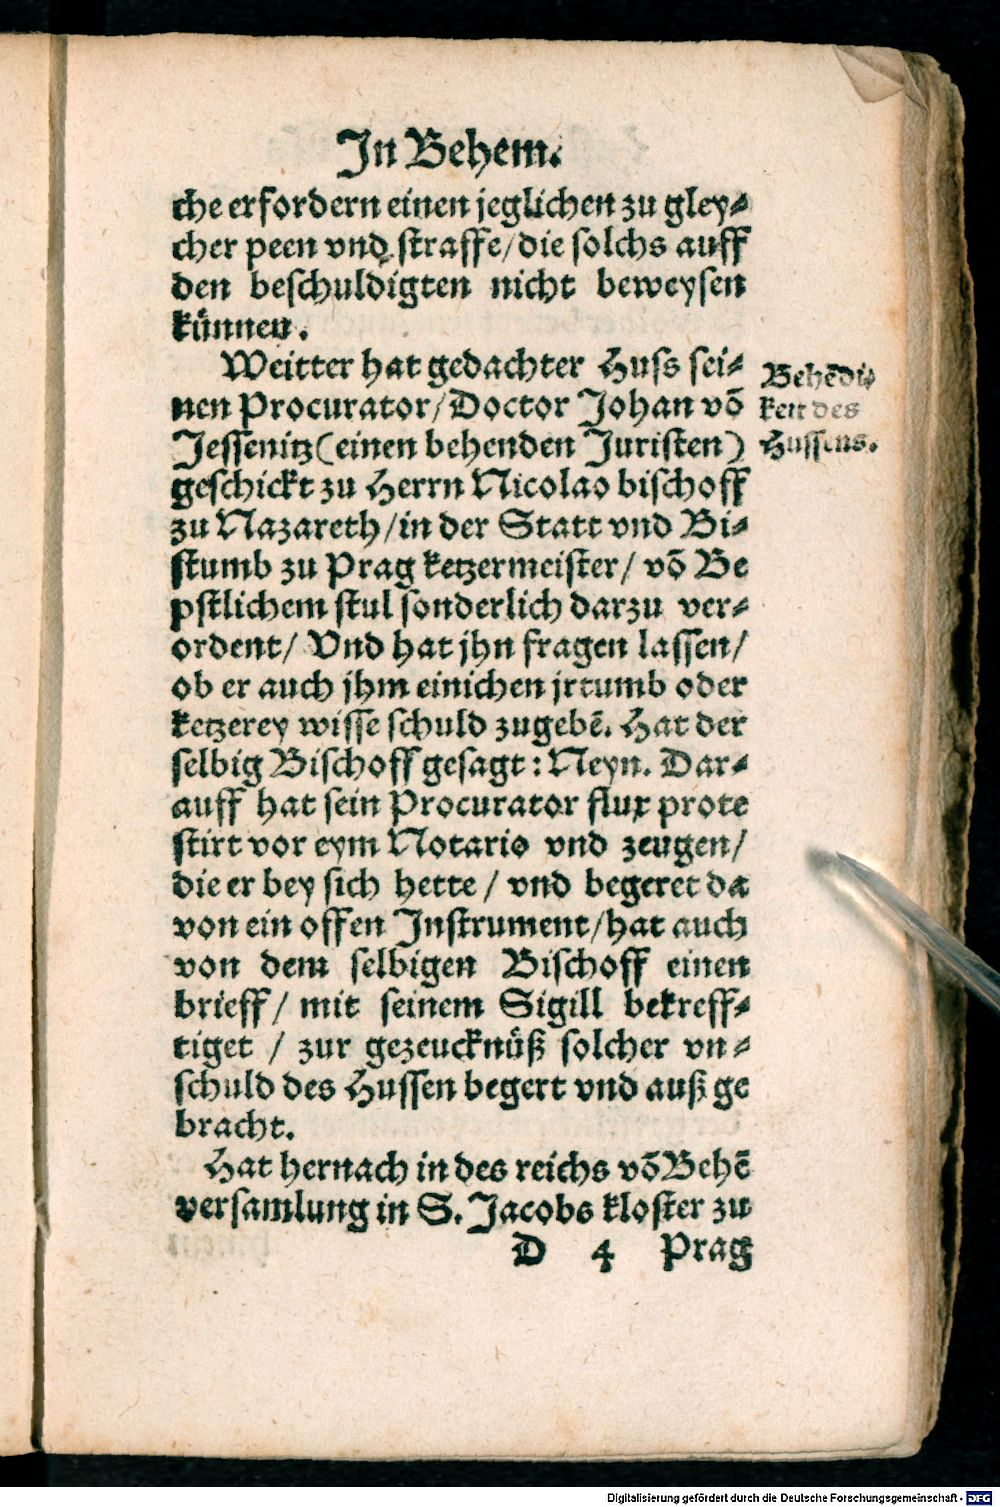 In Behem.
che erfordern einen jeglichen zu gley⸗
cher peen vnd straffe/die solchs auff
den beschuldigten nicht beweysen
künnen.
Weitter hat gedachter Huss sei⸗
nen Procurator/Doctor Johan võ
Jessenitz(einen behenden Juristen)
geschickt zu Herrn Nicolao bischoff
zu Nazareth/in der Statt vnd Bi⸗
stumb zu Prag ketzermeister/ võ Be
pstlichem stul sonderlich darzu ver⸗
ordent/ Vnd hat jhn fragen lassen/
ob er auch jhm einichen jrtumb oder
ketzerey wisse schuld zugebē. Hat der
selbig Bischoff gesagt: Neyn. Dar⸗
auff hat sein Procurator flux prote
stirt vor eym Notario vnd zeugen/
die er bey sich hette / vnd begeret da
von ein offen Instrument/hat auch
von dem selbigen Bischoff einen
brieff/ mit seinem Sigill bekreff⸗
tiget / zur gezeucknüß solcher vn⸗
schuld des Hussen begert vnd auß ge
bracht.
Hat hernach in des reichs võ Behē
versamlung in S. Jacobs kloster zu
D 4 Prag
Behēdi⸗
keit des
Hussens.
Digitalisierung gefördert durch die Deutsche Forschungsgemeinschaft - DFG